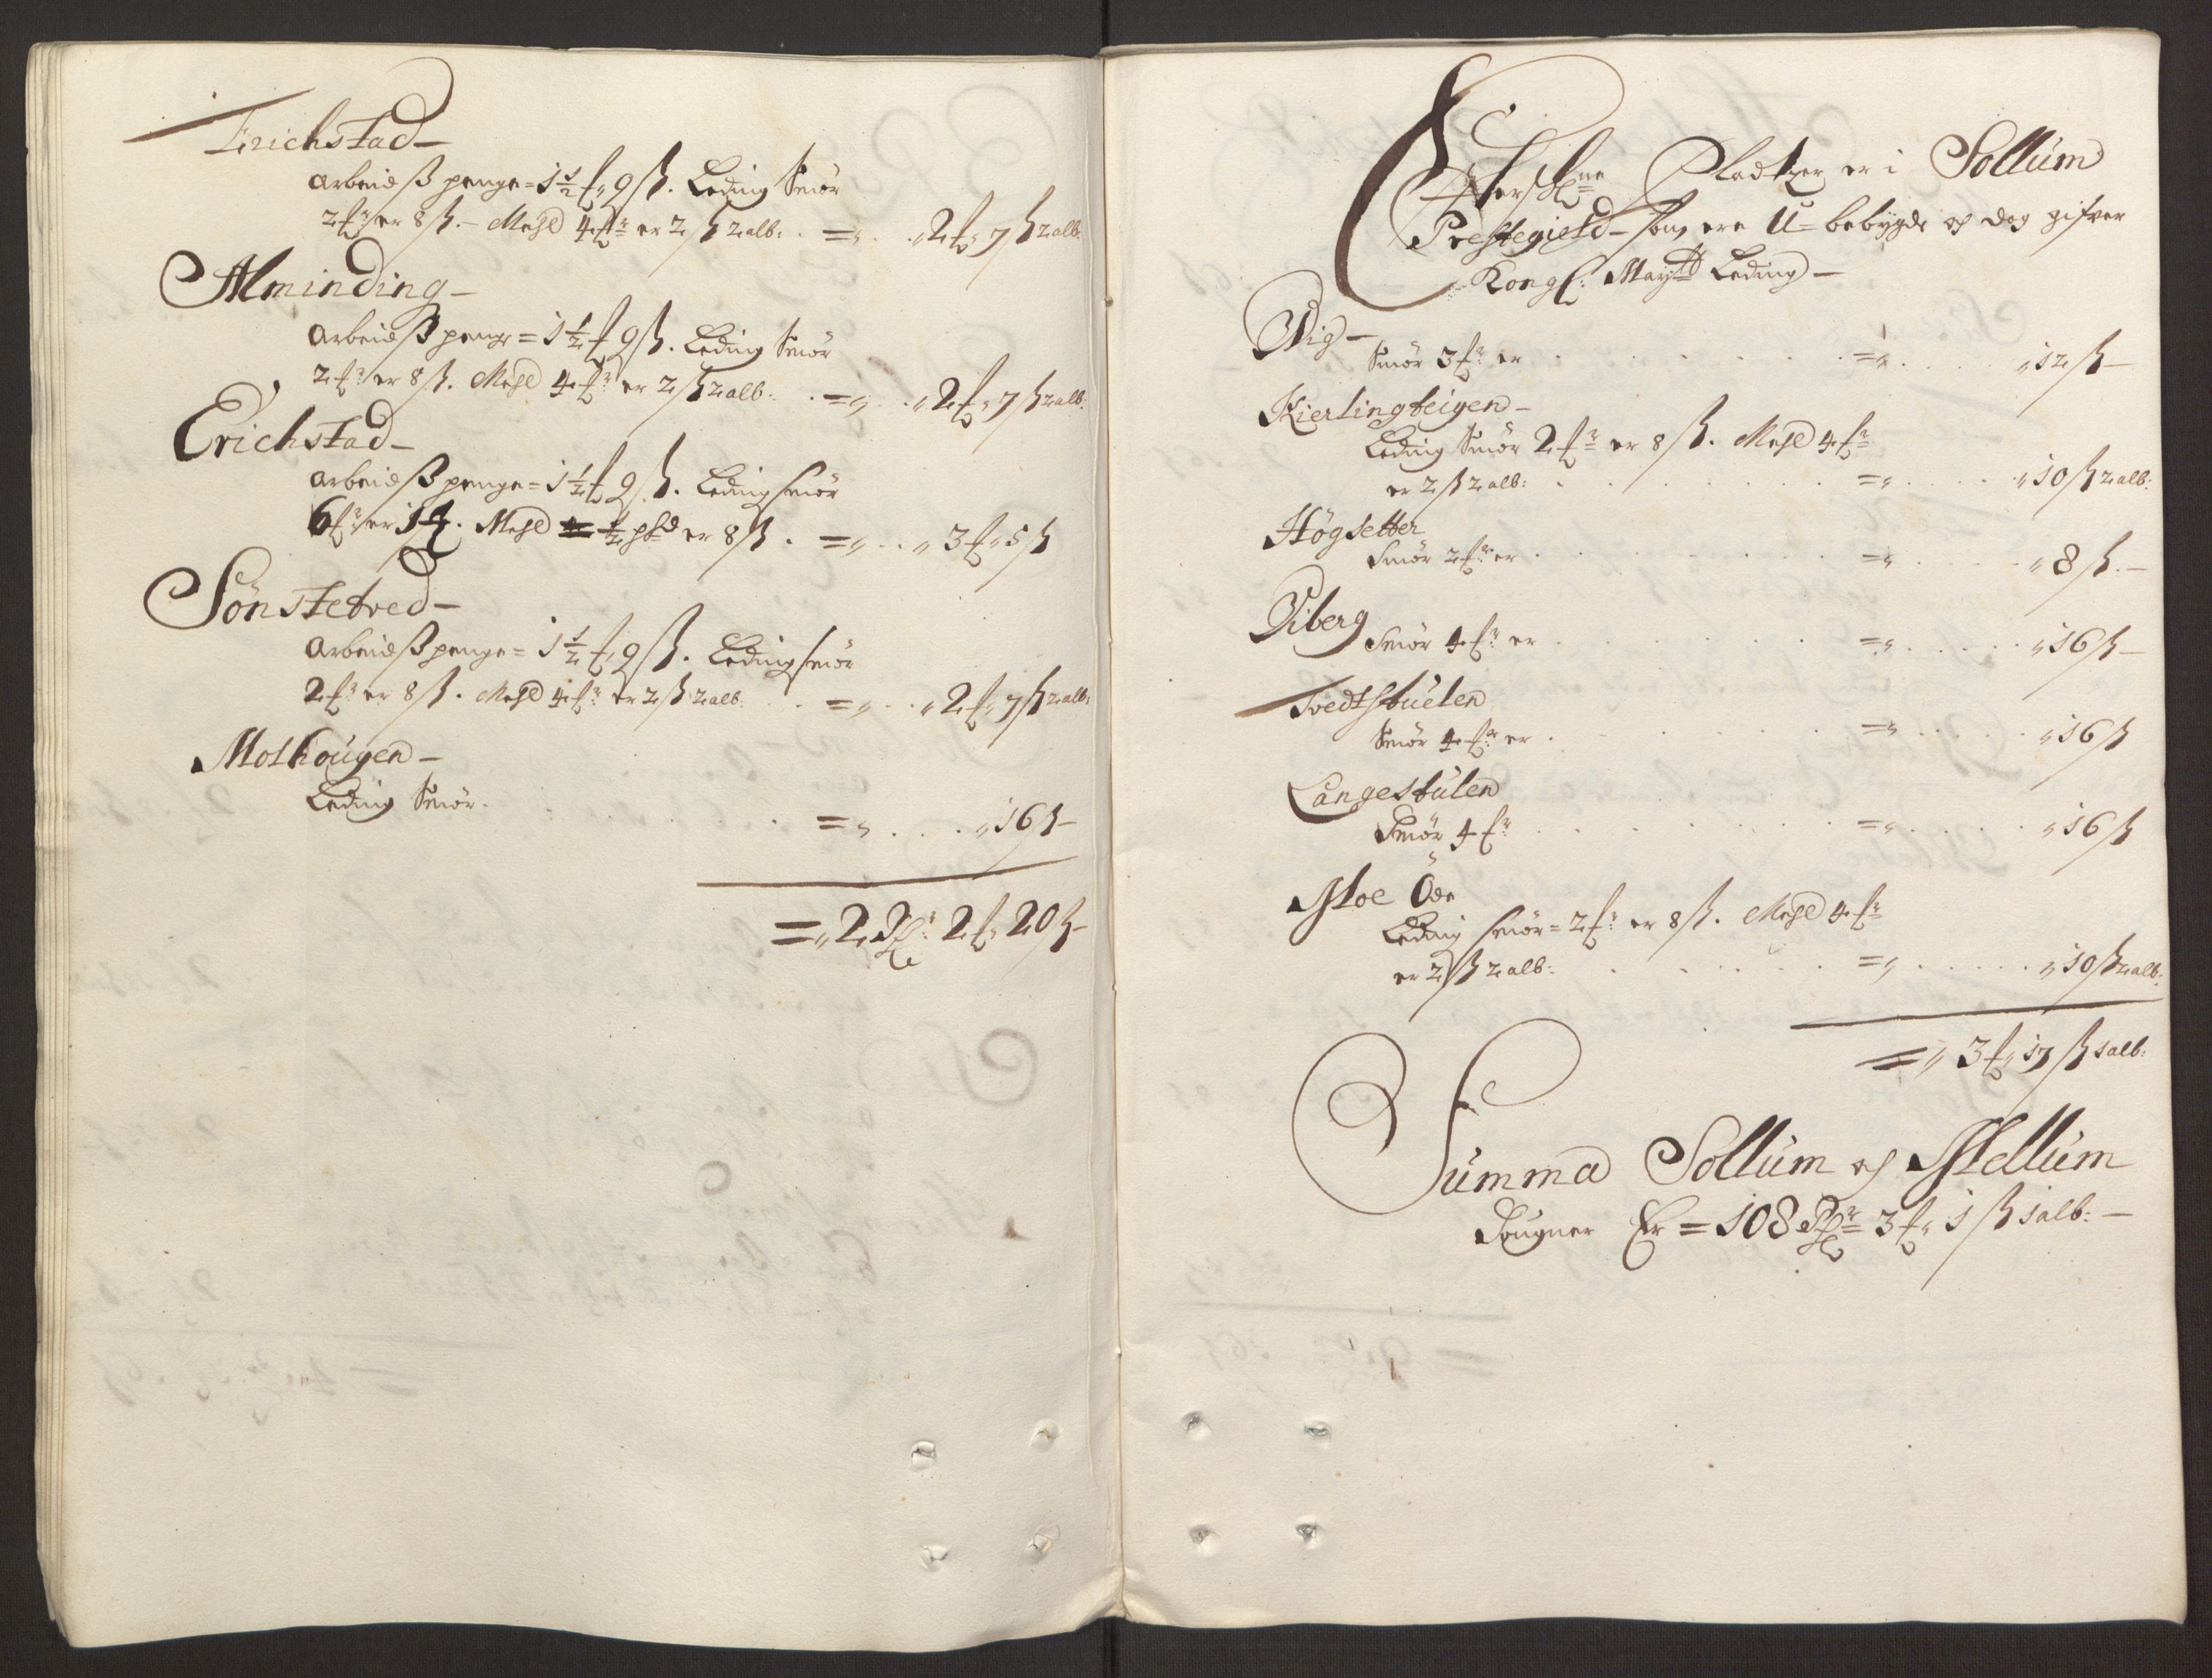 Erichstad –
Arbeidß penge = 1½ f 9 ß. Leding Smör
2 f:r er 8 ß. – Mehl 4 f:r er 2 ß 2 alb: . = „ . . „ 2 f „ 7 ß 2 alb:
Alminding –
Arbeidß penge = 1½ f 9 ß. Leding Smör
2 f:r er 8 ß. Mehl 4 f:r er 2 ß 2 alb: . = „ . . „ 2 f „ 7 ß 2 alb:
Erichstad –
Arbeidß penge = 1½ f 9 ß. Leding smör
6 f:r er 1 f. Mehl ½ pd er 8 ß . = „ . . „ 3 f „ 5 ß
Sönstetved –
Arbeidß penge = 1½ f „ 9 ß. Leding smör
2 f:r er 8 ß. Mehl 4 f:r er 2 ß 2 alb: . . = „ . . „ 2 f „ 7 ß 2 alb:
Molhougen –
Leding Smör . . . . . = „ . . . „ 16 ß –
= „ 2 Pf: 2 f „ 20 ß –
Pladtzer er i Sollum
Prestegield – som ere U = bebygde og dog gifver
Kongl: Maytt Leding –
Wig –
Smör 3 f:r er . . . . . = „ . . . . „ 12 ß –
Kierlingteigen –
Leding Smör 2 f:r er 8 ß. Mehl 4 f:r
er 2 ß 2 alb: . . . . . = „ . . . . „ 10 ß 2 alb:
Högsetter
Smör 2 f:r er . . . . . = „ . . . . „ 8 ß. –
Piberg
Smör 4 f:r er . . . . . = „ . . . . „ 16 ß –
Tvedtstuelen
Smör 4 f:r er . . . . . = „ . . . . „ 16 ß
Langestulen
Smör 4 f:r . . . . . = „ . . . . „ 16 ß
Moe Öde
Leding smör = 2 f:r er 8 ß. Mehl 4 f:r
er 2 ß 2 alb: . . . . . = „ . . . . „ 10 ß 2 alb:
= „ 3 f „ 17 ß 1 alb:
Summa Sollum og Mellum
Sougner Er = 108 Pf:r 3 f „ 1 ß 1 alb: –